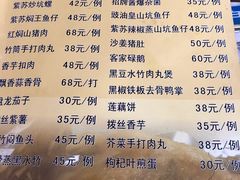 紫苏炒坑螺 42元/例
紫苏焖王鱼仔 58元/例
红焖山猪肉 68元/例
竹筒手打肉丸 48元/例
香芋扣肉 48元/例
飘香蒜香骨 68元/打
龙茄子 30元/例
丝紫薯 35元/例
竹闷鱼头 45元/例
蒸黑水竹 30元/例
招牌酱爆茶菌 35元/例
豉油皇山坑鱼仔 58元/例
紫苏辣椒蒸山坑鱼仔 58元/例
沙姜猪肚 50元/例
客家碌鹅 60元/例
黑豆水竹肉丸煲 38元/例
黑椒铁板去骨鸭掌 38元/例
莲藕饼 38元/例
拨丝香芋 35元/例
芥菜手打肉丸 38元/例
枸杞叶煎蛋 30元/例